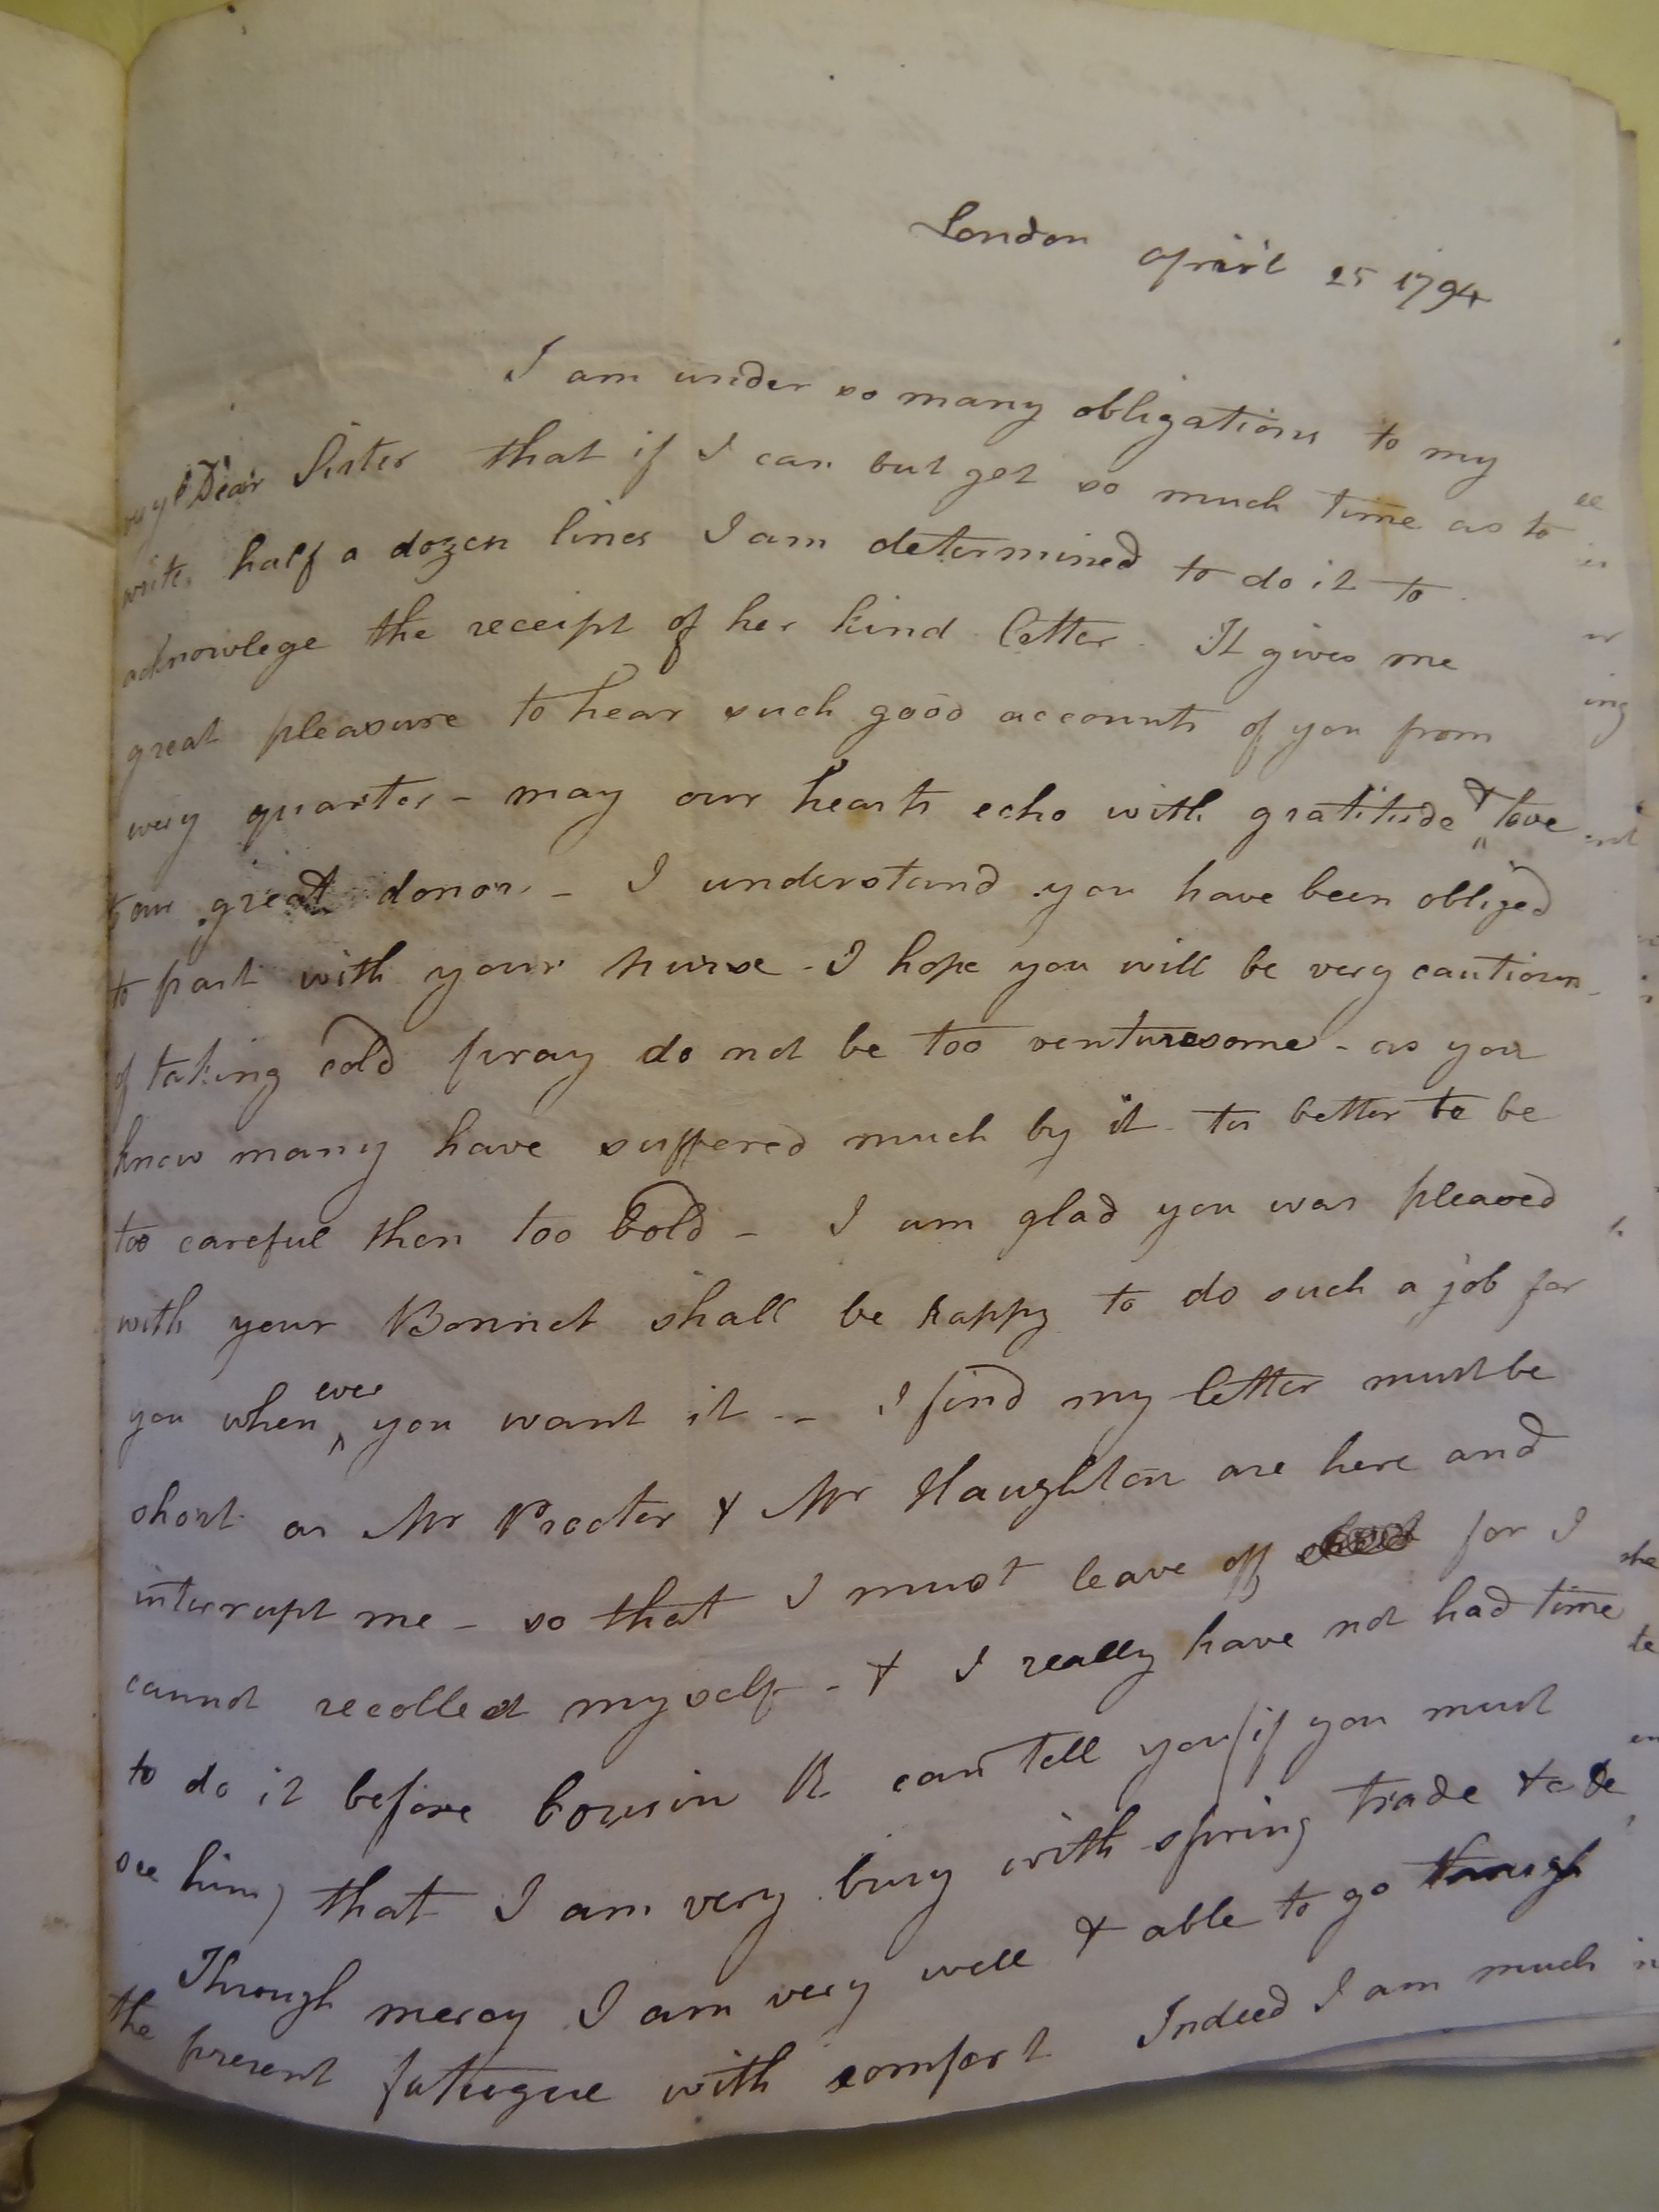 London april 25 1794
I am under so many obligations to my
Dear Sister that if I can but get so much time as to
write half a dozen lines I am determined to do it to
acknowlege the receipt of her kind letter. It gives me
great pleasure to hear such good accounts of you from
every quarter - may our hearts echo with gratitude & love
to our great donor - I understand you have been obliged
to part with your nurse - I hope you will be very cautious
of taking cold pray do not be too venturesome - as you
know many have suffered much by it tis better to be
too careful then too bold - I am glad you was pleased
with your Bonnet shall be happy to do such a job for
you when ever you want it -- I find my letter must be
short as Mr Procter & Mr Haughton are here and
interrupt me - so that I must leave off for I
cannot recollect myself - & I really have not had time
to do it before Cousin R. can tell you (if you must
see him) that I am very busy with spring trade
Through mercy I am very well & able to go through
the present fatiegue with comfort Indeed I am much